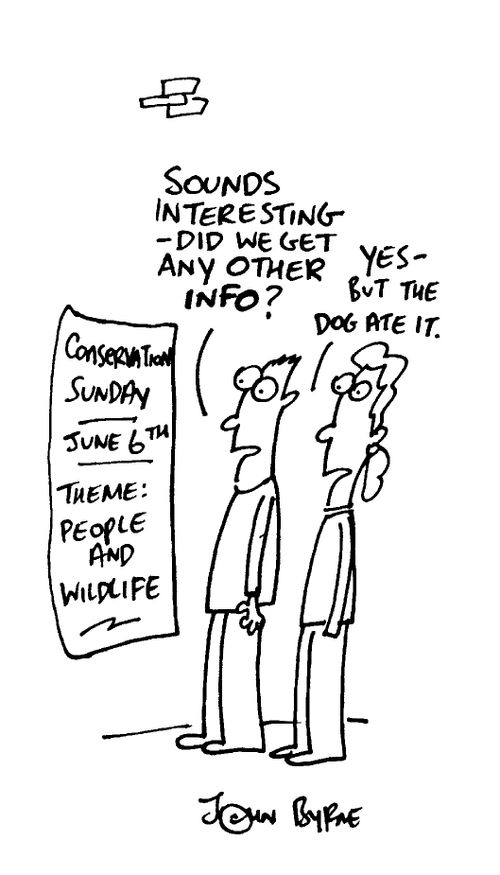 SOUNDS
INTERESTING
-DID WE GET
ANY OTHER
INFO?
YES-
BUT THE
DOG ATE IT.
CONSERVATION
SUNDAY
JUNE 6TH
THEME:
PEOPLE
AND
WILDLIFE
JOHN BYRNE